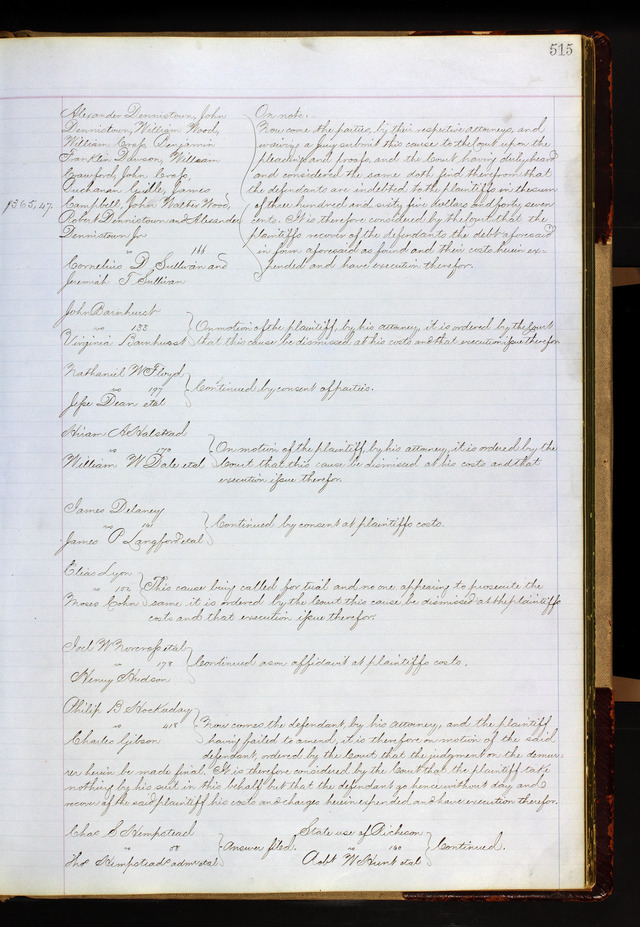 515
Alexander Dennistown, John
Dennistown, William Wood,
William Cross, Benjamin
Franklin Dawson, William
Crawford, John Cross,
Buchanan Guille, James
Campbell, John Walter Wood,
Robert Dennistown and Alexander
Dennistown Jr
vs 166
Cornelius D. Sullivan and
Jeremiah T Sullivan
$365,47.
On note.
Now come the parties, by their respective attorneys, and
waiving a jury submit this cause to the Court upon the
pleadings and proofs, and the Court having duly heard
and considered the same doth find therefrom that
the defendants are indebted to the plaintiffs in the sum
of three hundred and sixty five dollars and forty seven
cents. It is therefore considered by the Court that the
plaintiffs recover of the defendants the debt aforesaid
in form aforesaid as found and their costs herein ex-
pended and have execution therefor.
John Barnhurst
vs 133
Virginia Barnhurst
On motion of the plaintiff, by his attorney, it is ordered by the Court
that this cause be dismissed at his costs and that execution issue therefor
Nathaniel W Floyd
vs 197
Jesse Dean etal
Continued by consent of parties.
Hiram A Halstead
vs 170
William W Dale etal
On motion of the plaintiff, by his attorney, it is ordered by the
Court that this cause be dismissed at his costs and that
execution issue therefor.
James Delaney
vs 161
James P Langford etal
Continued by consent at plaintiffs costs.
Elias Lyon
vs 102
Moses Cohn
This cause being called for trial and no one appearing to prosecute the
same it is ordered by the Court this cause be dismissed at the plaintiffs
costs and that execution issue therefor.
Joel W Norcross etal
vs 178
Henry Hudson
Continued as on affidavit at plaintiffs costs.
Philip B Hockaday
vs 418
Charles Gibson
Now comes the defendant, by his attorney, and the plaintiff
having failed to amend, it is therefore on motion of the said
defendant, ordered by the Court that the judgment on the demur-
rer herein be made final. It is therefore considered by the Court that the plaintiff take
nothing by his suit in this behalf but that the defendant go hence without day and
recover of the said plaintiff his costs and charges herein expended, and have execution therefor.
Chas S Hempstead
vs 58
Thos Hempsteads admr etal
Answer filed.
State use of Dickson
vs 160
Robt W Hunt etal
Continued.